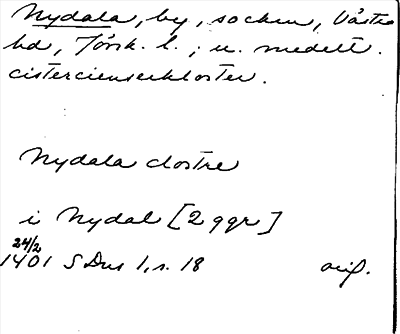 Nydala, by, socken, Västra
hd, Jönk. l.; u. medelt.
cistercienserkloster.
Nydala clostre
i Nydal [2 ggr]
24/2
1401 SDns 1, s. 18 orig.